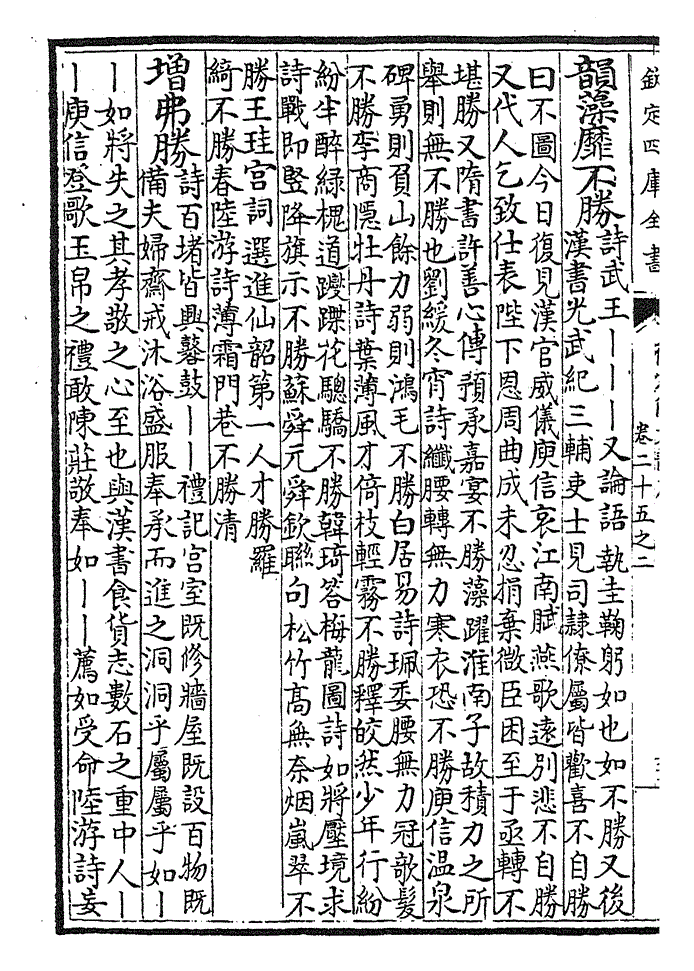 欽定四庫全書
卷二十五之二
韻藻靡不勝
詩武王丨丨丨又論語執圭鞠躬如也如不勝又後
漢書光武紀三輔吏士見司隷僚屬皆歡喜不自勝
曰不圖今日復見漢官威儀庾信哀江南賦燕歌遠別悲不自勝
又代人乞致仕表陛下恩周曲成未忍捐棄微臣困至于亟轉不
堪勝又隋書許善心傳預承嘉宴不勝藻躍淮南子故積力之所
舉則無不勝也劉緩冬宵詩纖腰轉無力寒衣恐不勝庾信温泉
碑勇則負山餘力弱則鴻毛不勝白居易詩珮委腰無力冠歌髮
不勝李商隱牡丹詩葉薄風才倚枝輕霧不勝釋皎然少年行紛
紛半醉綠槐道躞蹀花驄驕不勝韓琦答梅龍圖詩如將壓境求
詩戰即竪降旗示不勝蘇舜元舜欽聯句松竹高無奈烟嵐翠不
勝王珪宫詞選進仙韶第一人才勝羅
綺不勝春陸游詩薄霜門巷不勝清
增弗勝
詩百堵皆興鼛鼓丨丨禮記宫室既修牆屋既設百物既
備夫婦齋戒沐浴盛服奉承而進之洞洞乎屬屬乎如丨
丨如將失之其孝敬之心至也與漢書食貨志數石之重中人丨
丨庾信登歌玉帛之禮敢陳莊敬奉如丨丨薦如受命陸游詩妄